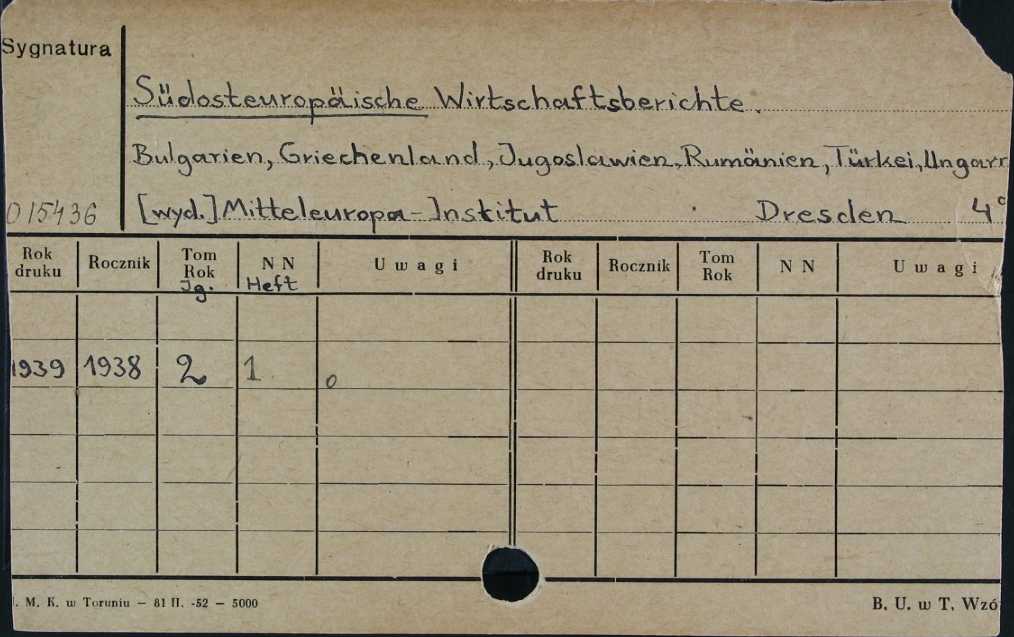 Sygnatura
Südosteuropäische Wirtschaftsberichte.
Bulgarien, Griechenland, Jugoslawien, Rumänien, Türkei, Ungarn
015436 [wyd.] Mitteleuropa-Institut Dresden 4°
Rok druku Rocznik Tom Rok Jg. N N Heft Uwagi Rok druku Rocznik Tom Rok N N Uwagi
1939 1938 2 1 o
. M. K. w Toruniu – 81 II. -52 – 5000 B. U. w T. Wzó